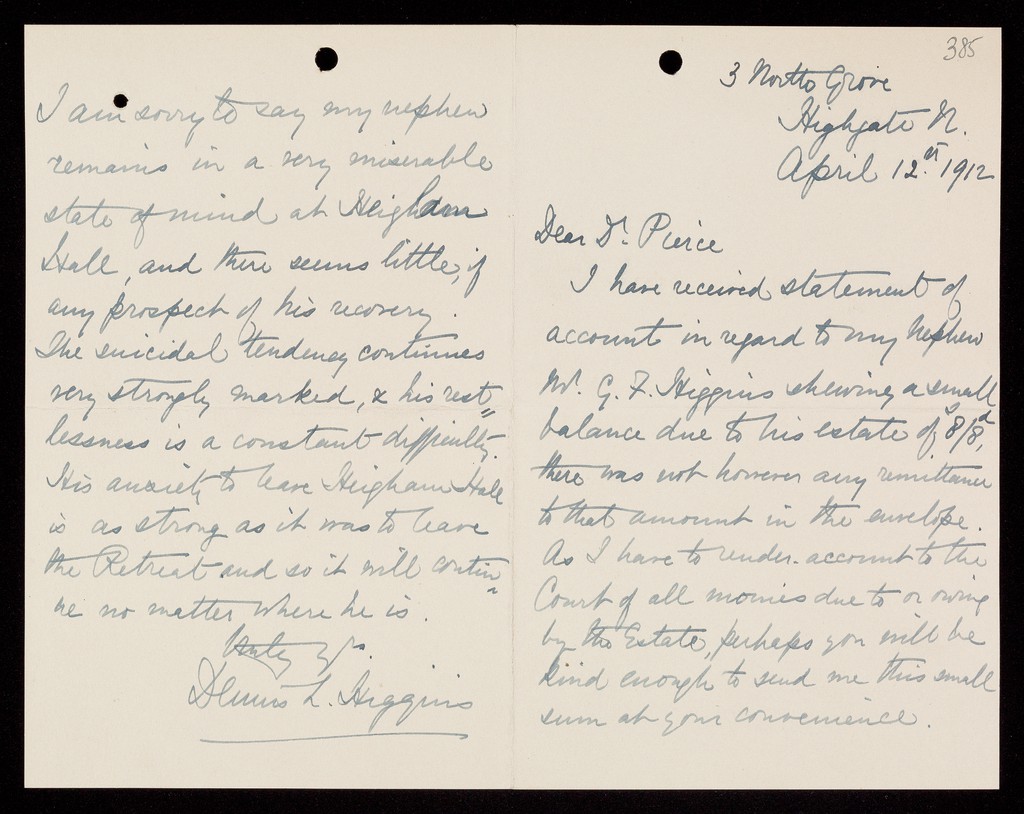 385
3 North Grove
Highgate N.
April 12th 1912
Dear Dr. Pierce
I have received statement of
account in regard to my Nephew
Mr. G. F. Higgins shewing a small
balance due to his estate of 8s/8d,
there was not however any remittance
to that amount in the envelope.
As I have to render account to the
Court of all monies due to or owing
by the Estate, perhaps you will be
kind enough to send me this small
sum at your convenience.
I am sorry to say my nephew
remains in a very miserable
state of mind at Heigham
Hall, and there seems little, if
any prospect of his recovery.
The suicidal tendency continues
very strongly marked, & his rest=
lessness is a constant difficulty.
His anxiety to leave Heigham Hall
is as strong as it was to leave
the Retreat and so it will contin=
ue no matter where he is.
yrs.
Dennis L. Higgins